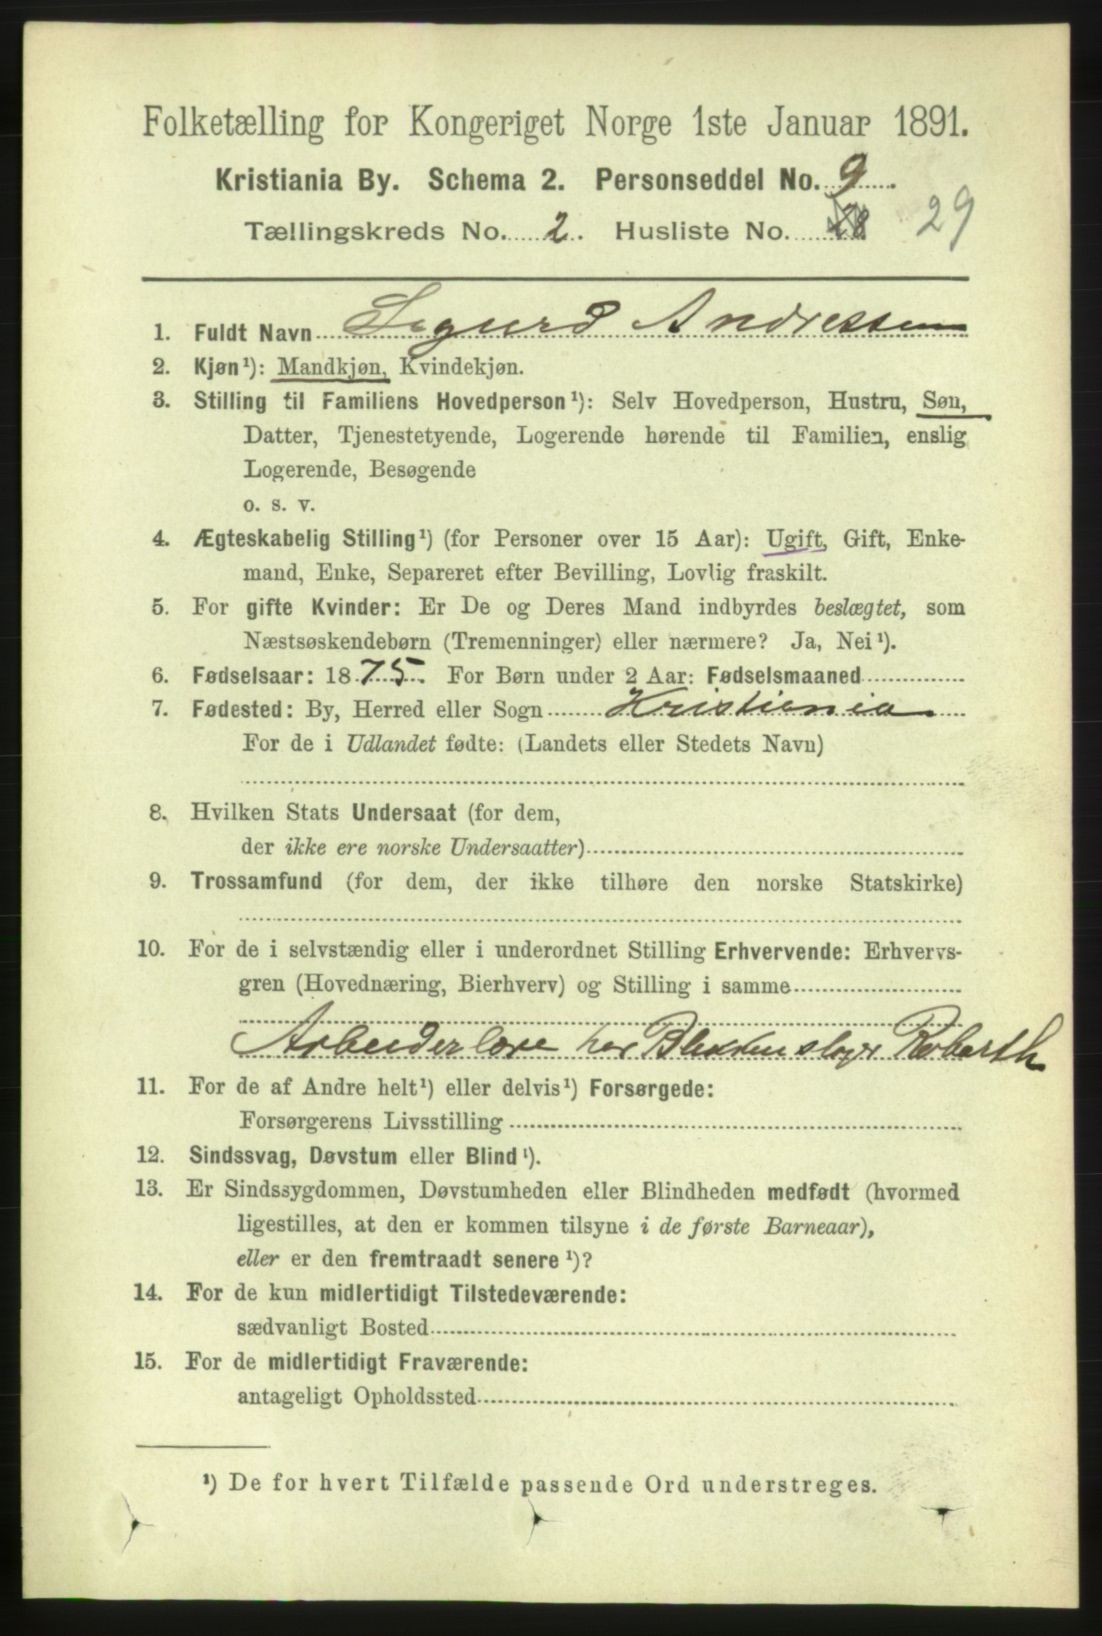 Folketælling for Kongeriget Norge 1ste Januar 1891.
Kristiania By. Schema 2. Personseddel No. 9.
Tællingskreds No. 2. Husliste No. 28 29
1. Fuldt Navn Sigurd Andressen
2. Kjøn¹): Mandkjøn, Kvindekjøn.
3. Stilling til Familiens Hovedperson¹): Selv Hovedperson, Hustru, Søn,
Datter, Tjenestetyende, Logerende hørende til Familien, enslig
Logerende, Besøgende
o. s. v.
4. Ægteskabelig Stilling¹) (for Personer over 15 Aar): Ugift, Gift, Enke-
mand, Enke, Separeret efter Bevilling, Lovlig fraskilt.
5. For gifte Kvinder: Er De og Deres Mand indbyrdes beslægtet, som
Næstsøskendebørn (Tremenninger) eller nærmere? Ja, Nei¹).
6. Fødselsaar: 1875. For Børn under 2 Aar: Fødselsmaaned
7. Fødested: By, Herred eller Sogn Kristiania
For de i Udlandet fødte: (Landets eller Stedets Navn)
8. Hvilken Stats Undersaat (for dem,
der ikke ere norske Undersaatter)
9. Trossamfund (for dem, der ikke tilhøre den norske Statskirke)
10. For de i selvstændig eller i underordnet Stilling Erhvervende: Erhvervs-
gren (Hovednæring, Bierhverv) og Stilling i samme
Arbeider lære hos Blikkenslager Roberth
11. For de af Andre helt¹) eller delvis¹) Forsørgede:
Forsørgerens Livsstilling
12. Sindssvag, Døvstum eller Blind¹).
13. Er Sindssygdommen, Døvstumheden eller Blindheden medfødt (hvormed
ligestilles, at den er kommen tilsyne i de første Barneaar),
eller er den fremtraadt senere¹)?
14. For de kun midlertidigt Tilstedeværende:
sædvanligt Bosted
15. For de midlertidigt Fraværende:
antageligt Opholdssted
¹) De for hvert Tilfælde passende Ord understreges.